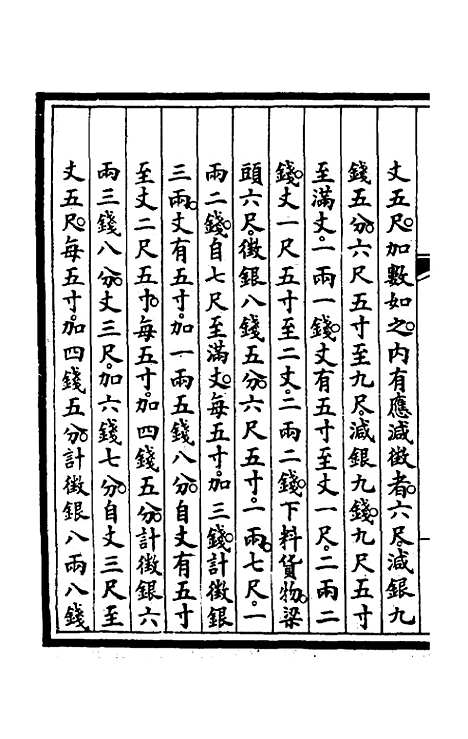 丈五尺。加數如之。內有應減徵者。六尺。減銀九
錢五分。六尺五寸至九尺。減銀九錢。九尺五寸
至滿丈。一兩一錢。丈有五寸至丈一尺。二兩二
錢。丈一尺五寸至二丈。二兩二錢。下料貨物。梁
頭六尺。徵銀八錢五分。六尺五寸。一兩。七尺。一
兩二錢。自七尺至滿丈。每五寸。加三錢。計徵銀
三兩。丈有五寸。加一兩五錢八分。自丈有五寸
至丈二尺五寸。每五寸。加四錢五分。計徵銀六
兩三錢八分。丈三尺。加六錢七分。自丈三尺至
丈五尺。每五寸。加四錢五分。計徵銀八兩八錢